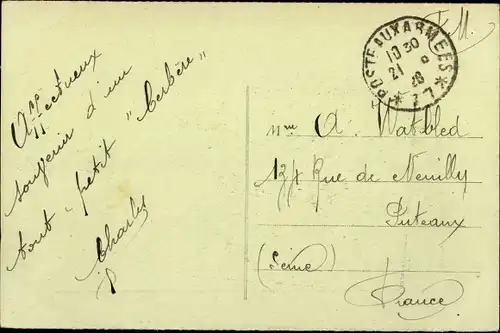 Affectueux
souvenir d'un
tout petit "Cerbère"
Charles
F.M.
POSTE AUX ARMEES
10 30
21 8
26
* 77 *
Mme A. Watbled
124 Rue de Neuilly
Puteaux
(Seine)
France